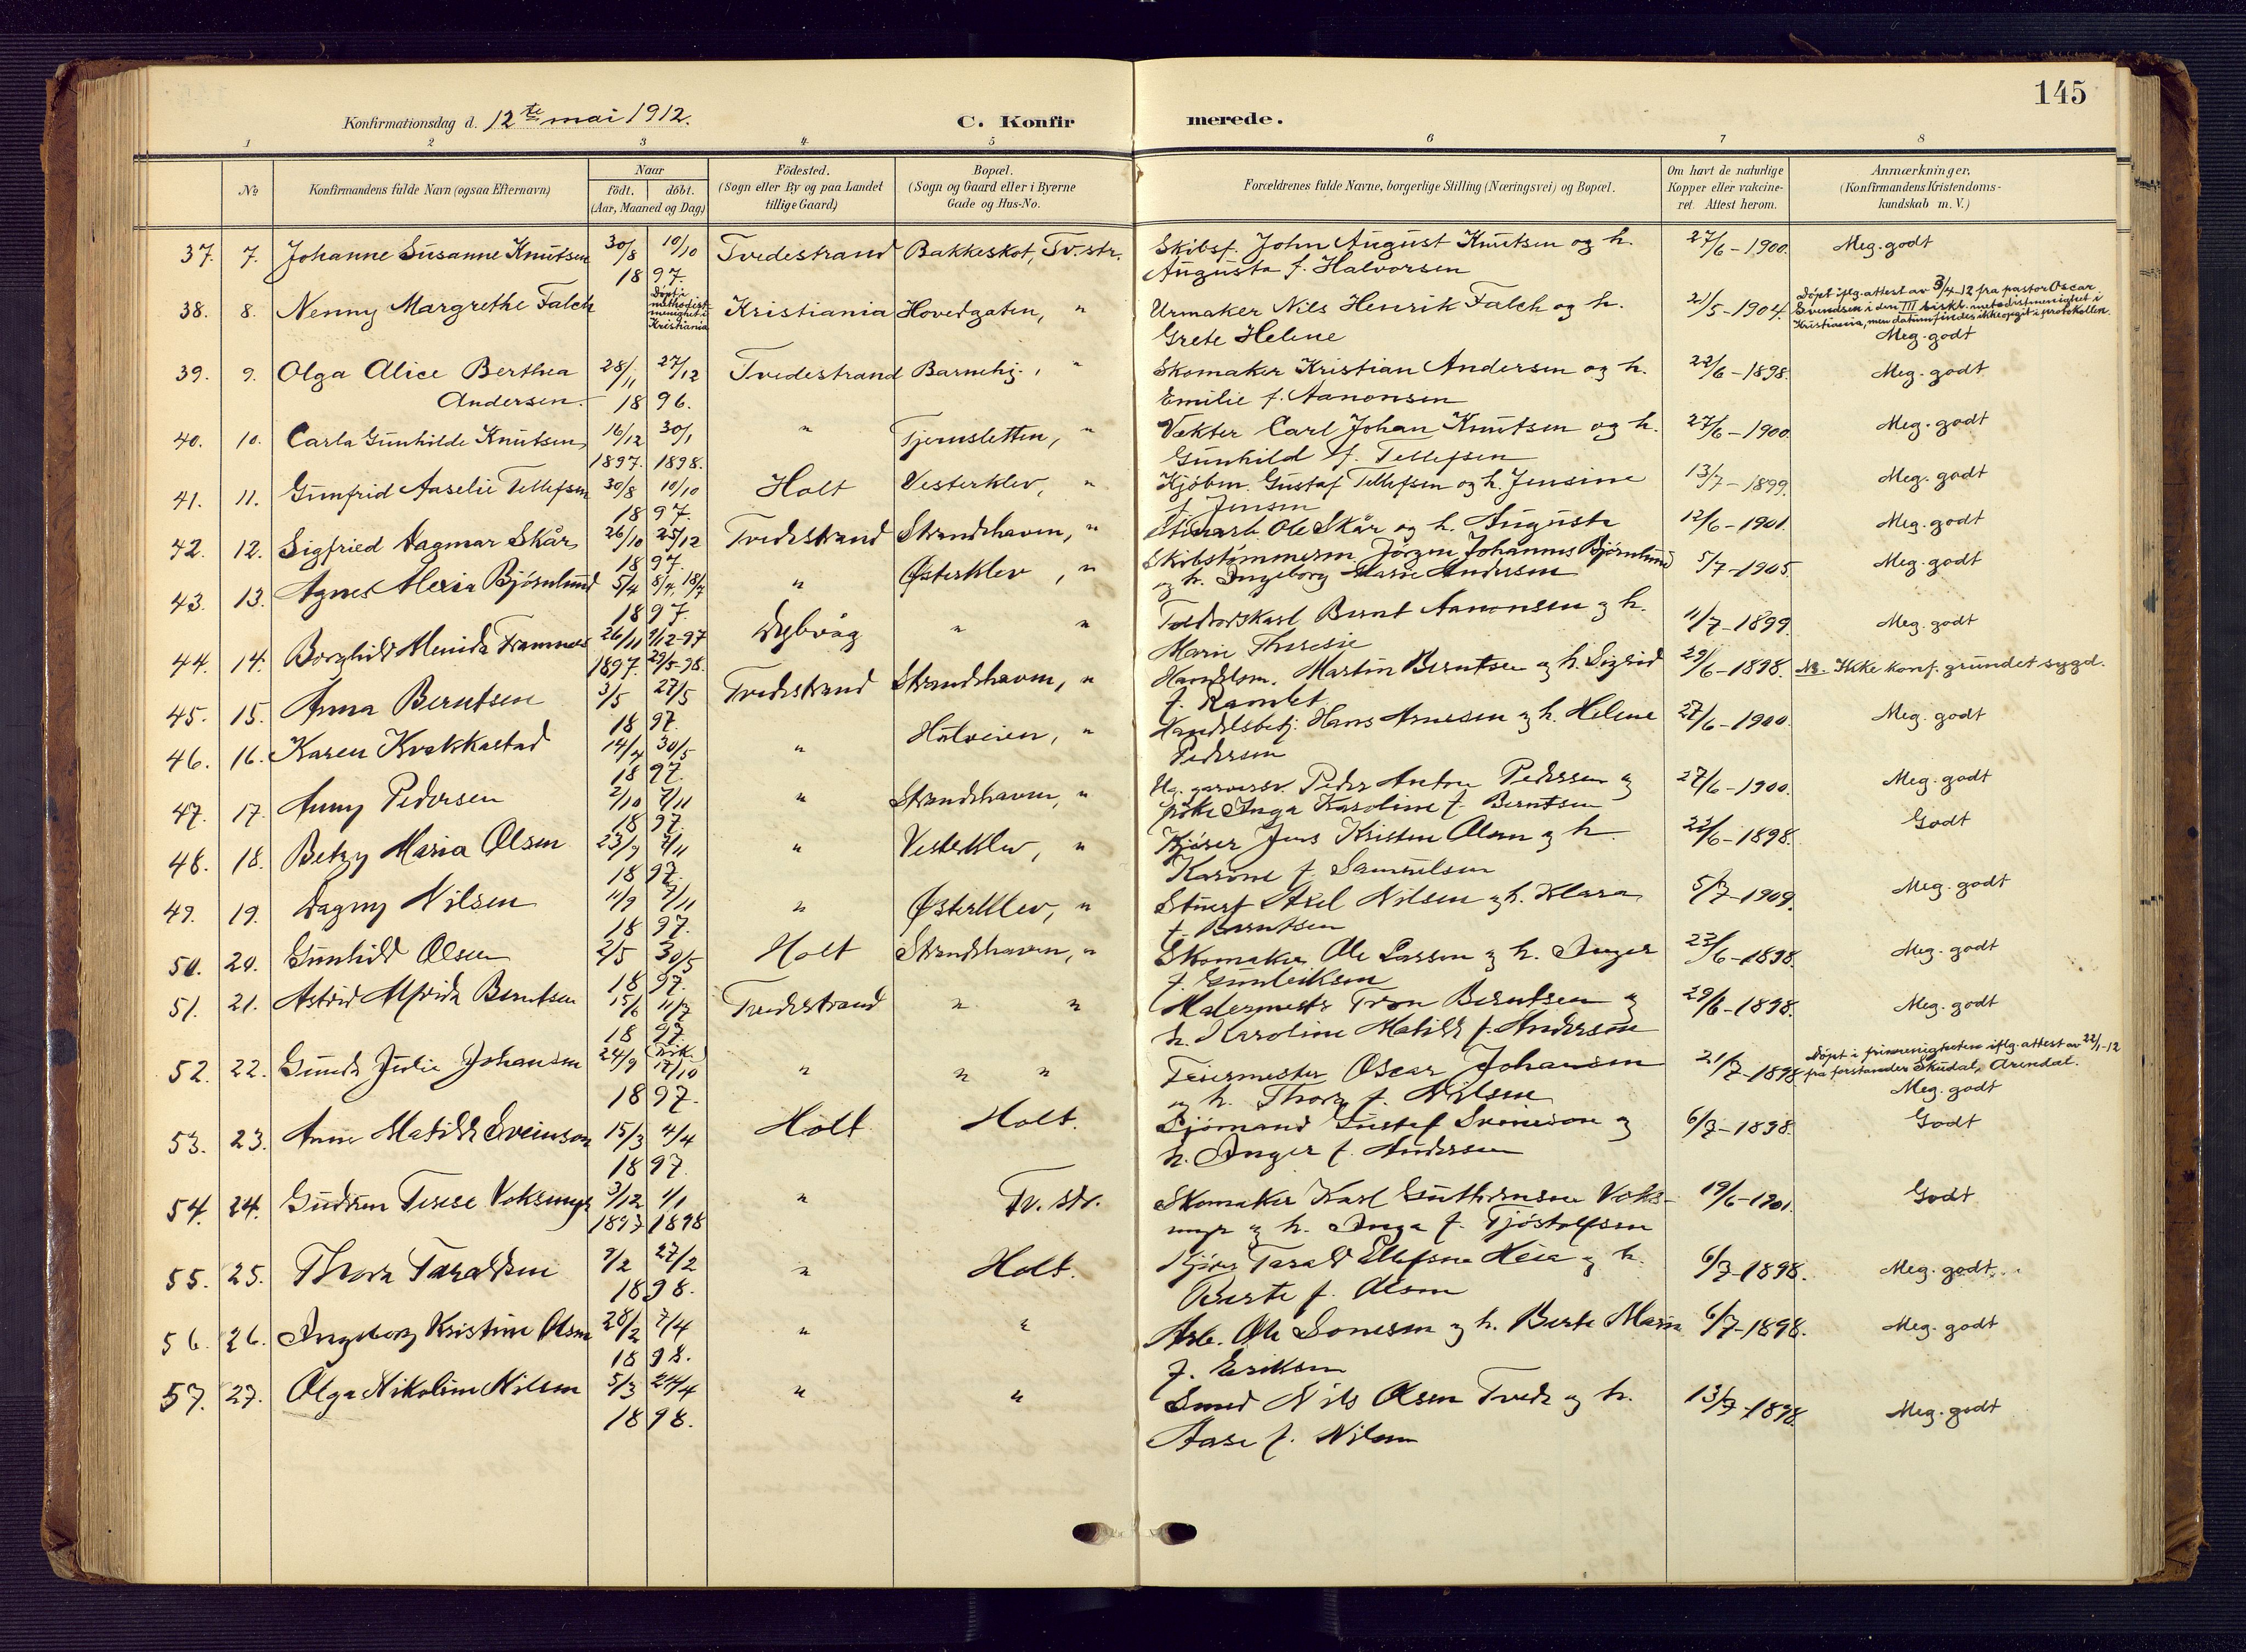 145
Konfirmationsdag d. 12te mai 1912. C. Konfirmerede.
1 2 3 4 5 6 7 8
No Konfirmandens fulde Navn (ogsaa Efternavn) Naar födt. döbt. (Aar, Maaned og Dag) Födested. (Sogn eller By og paa Landet tillige Gaard) Bopæl. (Sogn og Gaard eller i Byerne Gade og Hus-No. Forældrenes fulde Navne, borgerlige Stilling (Næringsvei) og Bopæl. Om havt de naturlige Kopper eller vakcineret. Attest herom. Anmærkninger, (Konfirmandens Kristendomskundskab m. V.)
37. 7. Johanne Susanne Knutsen 30/8 10/10 Tvedestrand Bakkeskot, Tv.str. Skibsf. John August Knutsen og h. 27/6-1900. Meg. godt
1897. Augusta f. Halvorsen
38. 8. Nenny Margrethe Falch Döpt i methodistmenighet i Kristiania Kristiania Hovedgaten, " Urmaker Nils Henrik Falch og h. 21/5-1904. Döpt iflg. attest av 3/4-12 fra pastor Oscar
Svendsen i den III biskl. metodistmenighet i
Kristiania, men datum findes ikke opgit i protokollen.
Grete Helene Meg. godt
39. 9. Olga Alice Berthea 28/11 27/12 Tvedestrand Barnehj., " Skomaker Kristian Andersen og h. 22/6-1898. Meg. godt
Andersen. 1896. Emilie f. Aanonsen
40. 10. Carla Gunhilde Knutsen 16/12 30/1 " Tjernsletten, " Vekter Carl Johan Knutsen og h. 27/6-1900. Meg. godt
1897. 1898. Gunhild f. Tellefsen
41. 11. Gunfrid Aaselie Tellefsen 30/8 10/10 Holt Vesterklev, " Kjöbm. Gustaf Tellefsen og h. Jensine 13/7-1899. Meg. godt
1897. f. Jensen
42. 12. Sigfried Dagmar Skår 26/10 25/12 Tvedestrand Strandhaven, " Stuart Ole Skår og h. Augusta 12/6-1901. Meg. godt
1897.
43. 13. Agnes Alexia Bjørnlund 5/4 8/4, 18/7 " Østerklev, " Skibstömmerm. Jörgen Johannes Bjørnlund 5/7-1905. Meg. godt
1897. og h. Ingeborg Marie Andersen
44. 14. Borghild Menida Framnes 26/11 9/12-97 Dybvåg " " Toldrorskarl Bernt Aanonsen og h. 11/7-1899. Meg. godt
1897. 29/5-98. Marie Theresie
45. 15. Anna Berntsen 3/5 27/5 Tvedestrand Strandhaven, " Handelsm. Martin Berntsen og h. Sigrid 29/6-1898. NB. Ikke konf. grundet sygd.
1897. f. Ramlet
46. 16. Karen Kvakkastad 14/4 30/5 " Holveien, " Handelsbetj. Hans Arnesen og h. Helene 27/6-1900. Meg. godt
1897. Pedersen
47. 17. Anny Pedersen 2/10 7/11 " Strandhaven, " Ug. garversv. Peder Anton Pedersen og 27/6-1900. Meg. godt
1897. pike Inga Karoline f. Berntsen
48. 18. Betzy Maria Olsen 23/9 7/11 " Vesterklev, " Kjörer Jens Kristen Olsen og h. 22/6-1898. Godt
1897. Karine f. Samuelsen
49. 19. Dagny Nilsen 11/9 7/11 " Østerklev, " Stuert Axel Nilsen og h. Klara 5/7-1909. Meg. godt
1897. f. Berntsen
50. 20. Gunhild Olsen 2/5 30/5 Holt Strandhaven, " Skomaker Ole Larsson og h. Inger 22/6-1898. Meg. godt
1897. f. Gunleiksen
51. 21. Astrid Alfrida Berntsen 15/6 11/7 Tvedestrand " " Malermester Tron Berntsen og 29/6-1898. Meg. godt
1897. h. Karoline Matilde f. Anderson
52. 22. Gunda Julie Johansen 24/9 (Frik.) 17/10 " " " Feiermester Oscar Johansen 21/7-1898. Döpt i frimenigheten iflg. attest av 22/1-12
fra forstander Skudal, Arendal.
1897. og h. Thora f. Nilsen Meg. godt
53. 23. Anne Matilde Sveinson 15/3 4/4 Holt Holt. Sjömand Gustaf Sveinson og 6/7-1898. Godt
1897. h. Inger f. Andersen
54. 24. Gudrun Terese Voksmyr 3/12 1/1 " Tv. str. Skomaker Karl Guttormsen Voks- 19/6-1901. Godt
1897 1898 myr og h. Inga f. Tjöstolfsen
55. 25. Thora Taraldsen 9/2 27/2 " Holt. Kjörer Tarald Ellefsen Heia og h. 6/7-1898. Meg. godt
1898. Berte f. Olsen
56. 26. Ingeborg Kristine Olsen 28/2 7/4 " " Arb. Ole Sonesen og h. Berte Marie 6/7-1898. Meg. godt
1898. f. Eriksen
57. 27. Olga Nikoline Nilsen 5/3 24/4 " " Smed Nils Olsen Tvede og h. 13/7-1898. Meg. godt
1898. Aase f. Nilsen